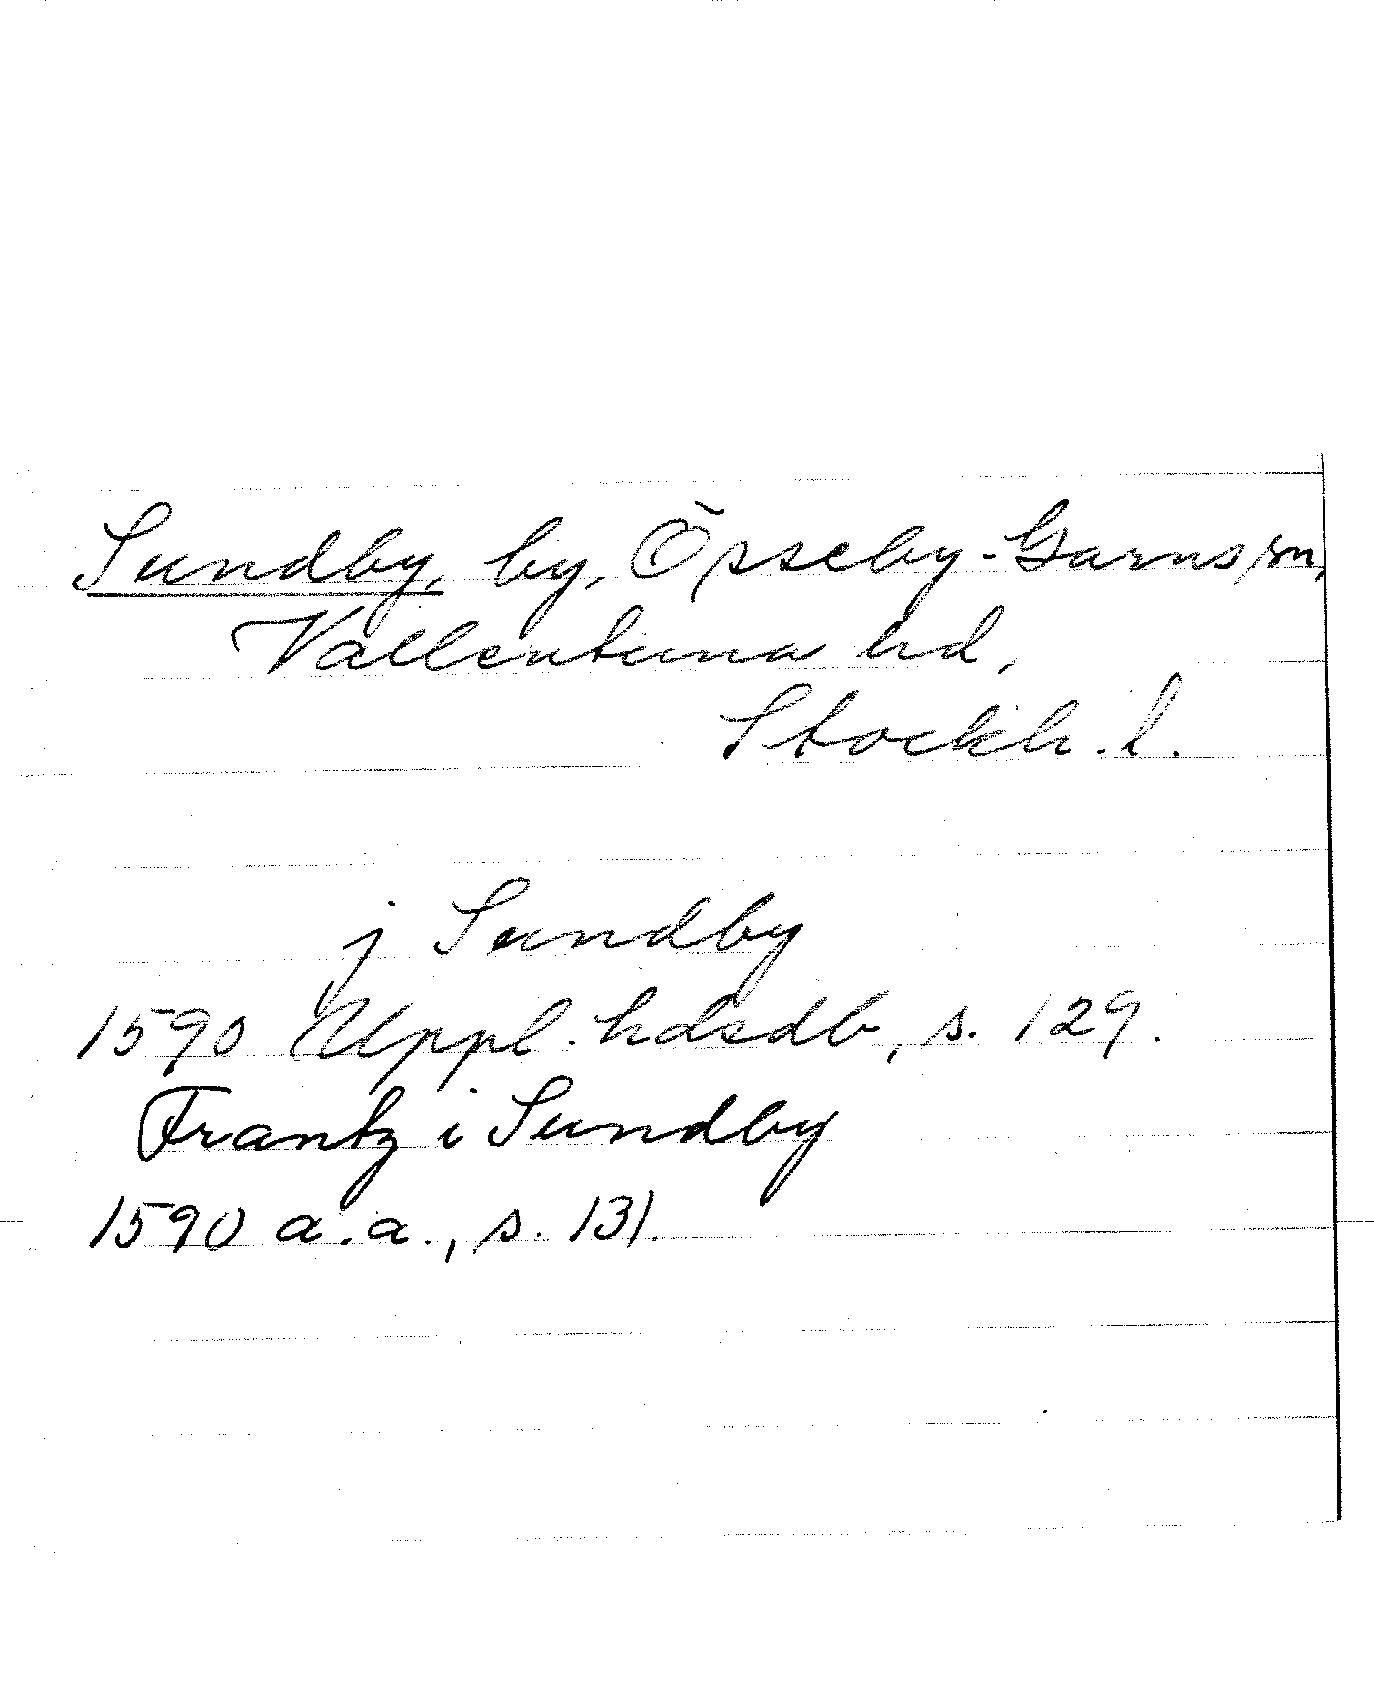 Sundby, by, Össeby-Garns sn,
Vallentuna hd,
Stockh. l.
j Sundby
1590 Uppl. hdsdb, s. 129.
Frantz i Sundby
1590 a.a., s. 131.